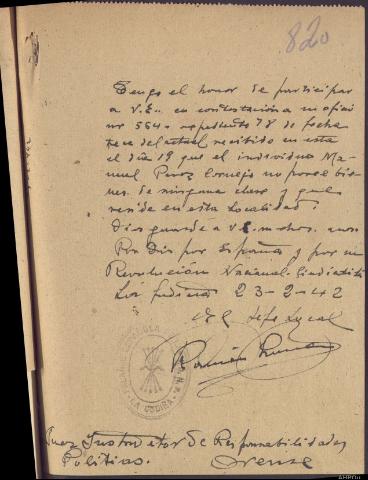 820
Tengo el honor de participar
a V.E. en contestación a su oficio
nº 564 - expediente 78 de fecha
trece del actual recibido en esta
el dia 19 que el individuo Ma-
nuel Perez Cornejo no posee bie-
nes de ninguna clase y que
reside en esta localidad.
Dios guarde a V.E. muchos anos
Por Dios por España y por su
Revolución Nacional-Sindicalista
23-2-42
El Jefe Local
Ramón
LA GUDIÑA
Juez Instructor de Responsabilidades
Politicas. Orense
AHPOu